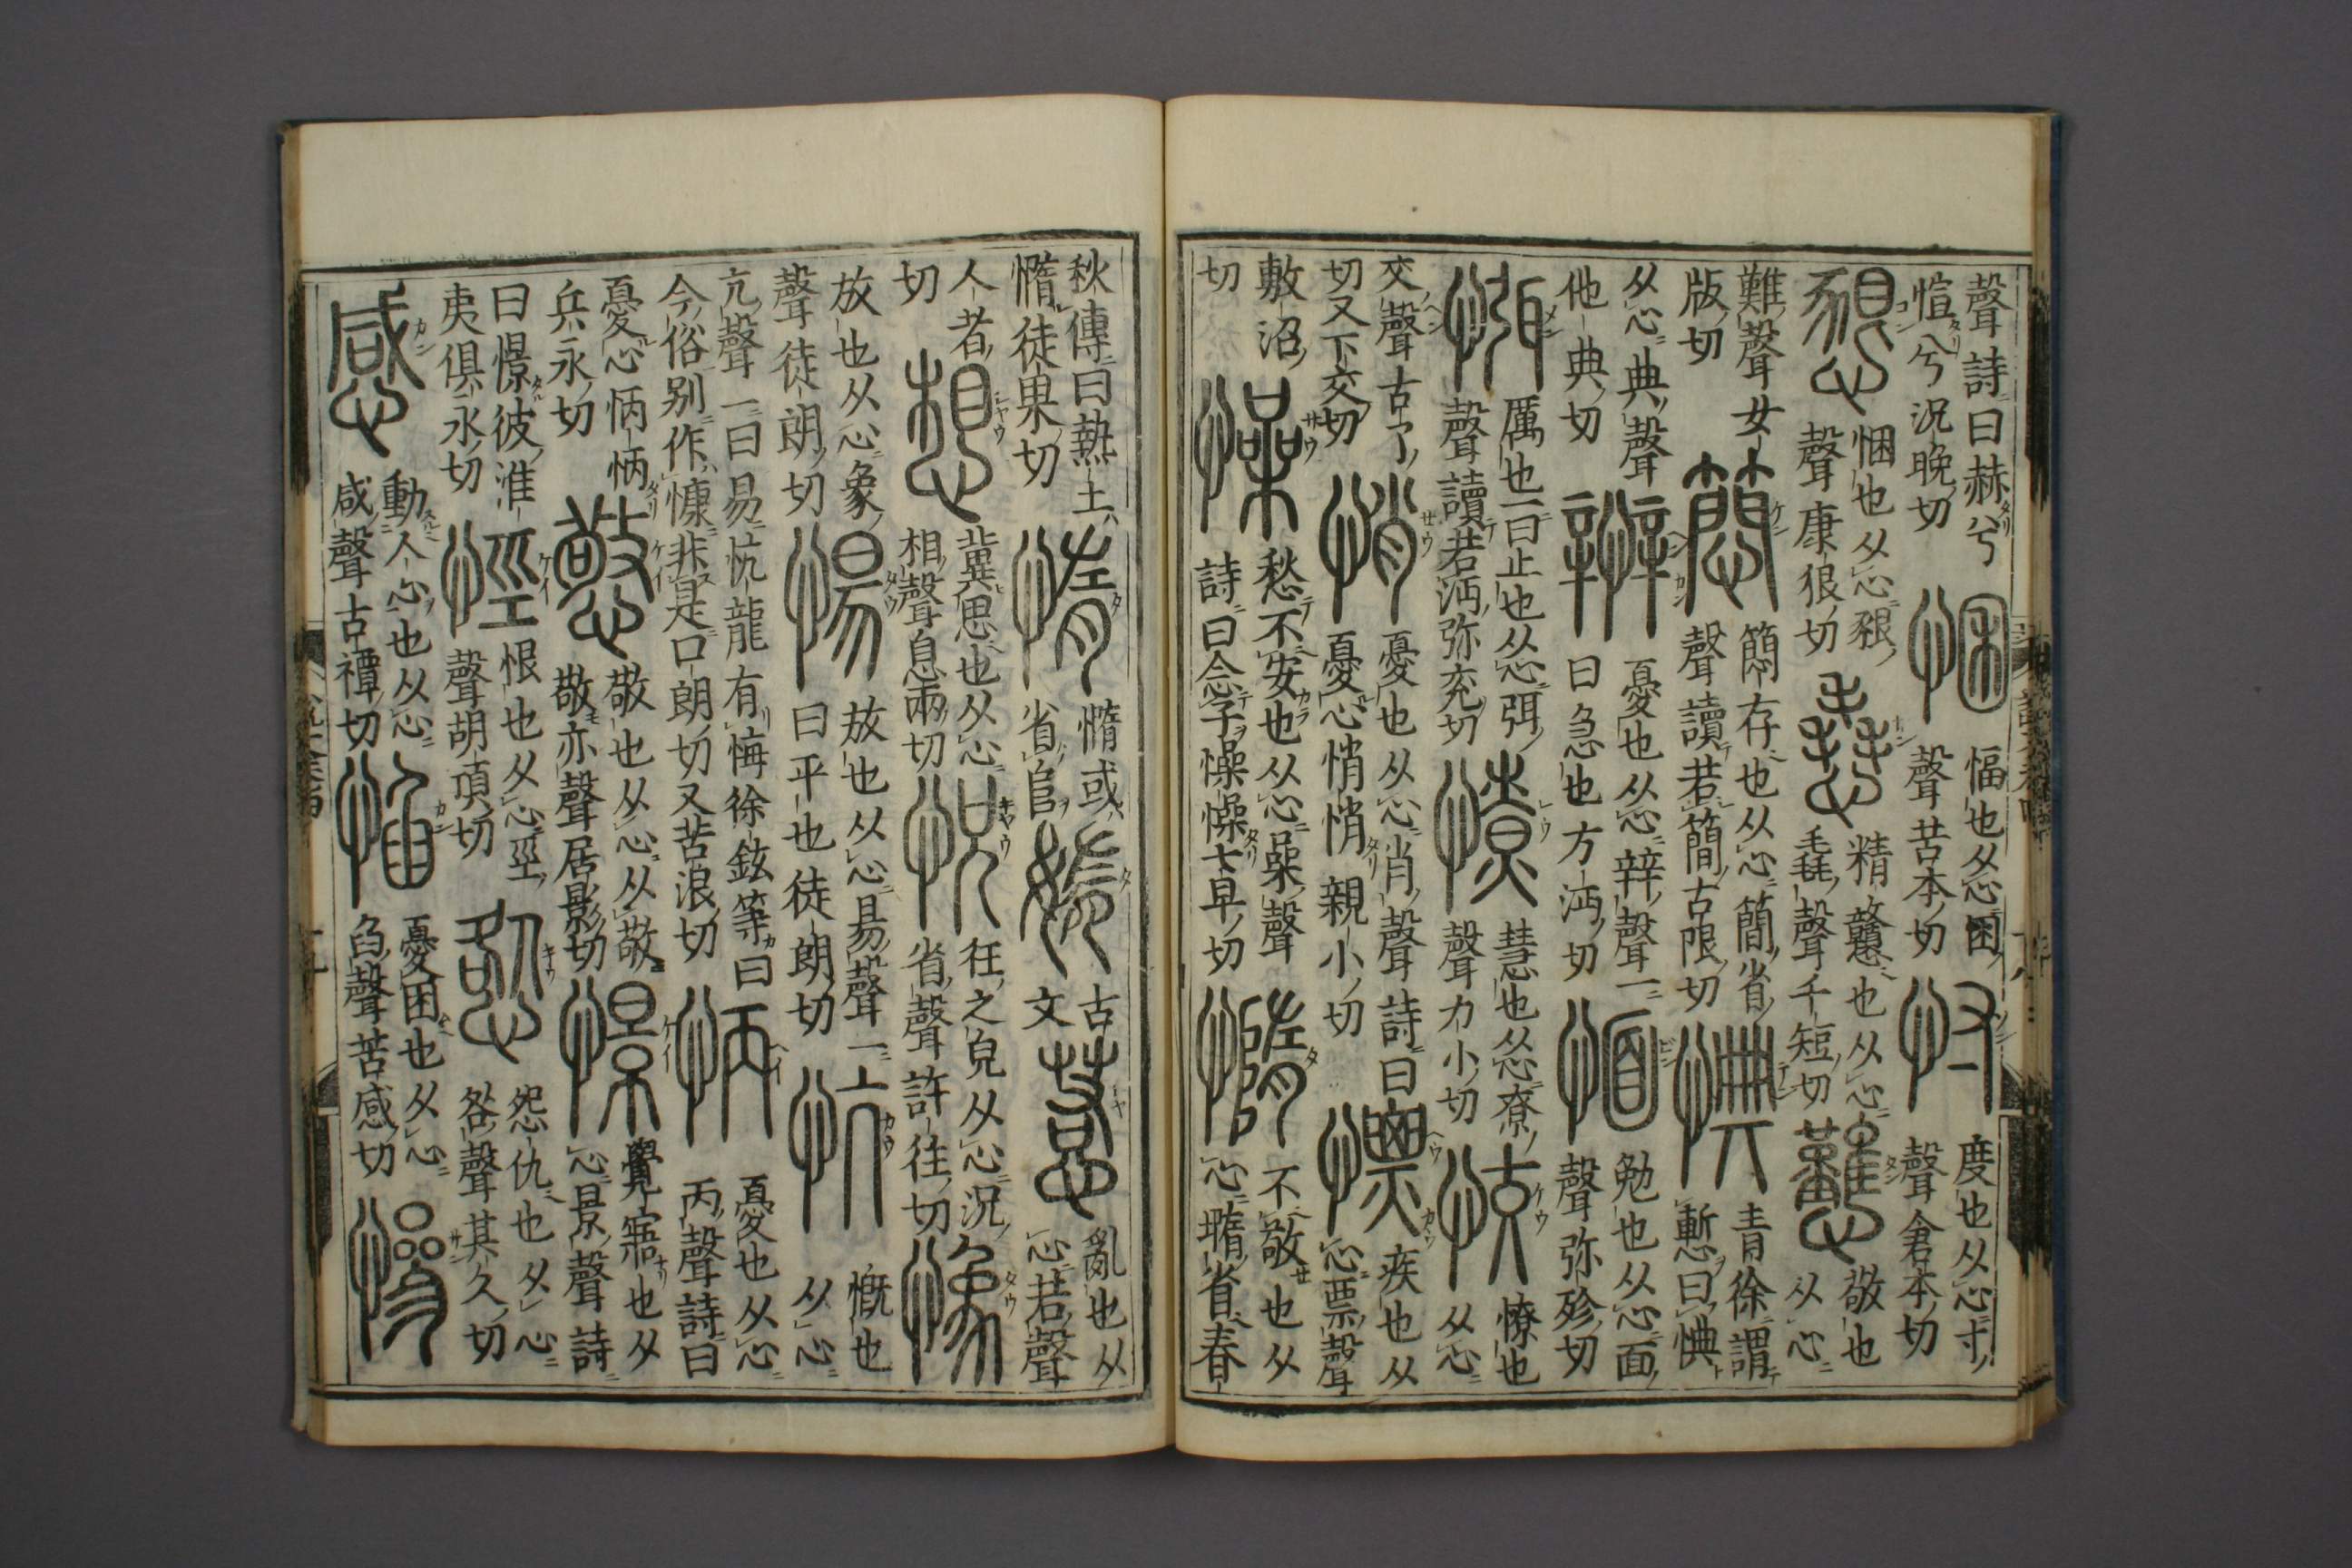 聲詩曰赫兮愃兮況晚切悃愊也从心困聲苦本切忖度也从心寸聲倉本切
懇悃也从心貇聲康狠切精戇也从心毳聲千短切戁敬也从心
難聲女版切簡存也从心簡省聲讀若簡古限切㥏青徐謂慙曰㥏
从心典聲他典切憂也从心辡聲一曰急也方沔切愐勉也从心面聲弥殄切
厲也一曰止也从心弭聲讀若沔弥兖切憭慧也从心尞聲力小切恔憭也从心
交聲古了切又下交切悄憂也从心肖聲詩曰憂心悄悄親小切慓疾也从心票聲
敷沼切懆愁不安也从心喿聲詩曰念子懆懆七早切憜不敬也从心㙐省春
秋傳曰執玉惰徒果切惰憜或省𨸏媠古文惹亂也从心若聲
人者切想兾思也从心相聲息兩切怳狂之皃从心況省聲許往切
放也从心象聲徒朗切愓放也从心昜聲一曰平也徒朗切忼慨也从心
亢聲一曰易忼龍有悔徐鉉等曰今俗别作慷非是口朗切又苦浪切怲憂也从心丙聲詩曰
憂心怲怲兵永切憼敬也从心从敬敬亦聲居影切憬覺寤也从心景聲詩
曰憬彼淮夷俱永切恨也从心巠聲胡頂切怨仇也从心咎聲其久切
感動人心也从心咸聲古禫切惂憂困也从心臽聲苦感切